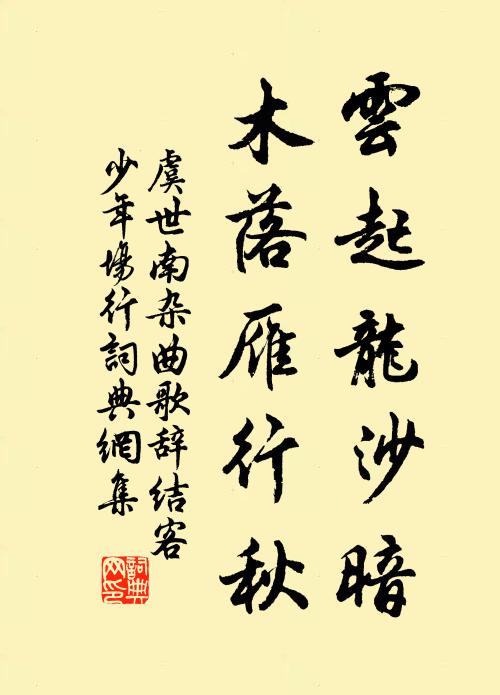 雲起龍沙暗
木落雁行秋
虞世南杂曲歌辞结客
少年場行詞典網集
詞典
网印